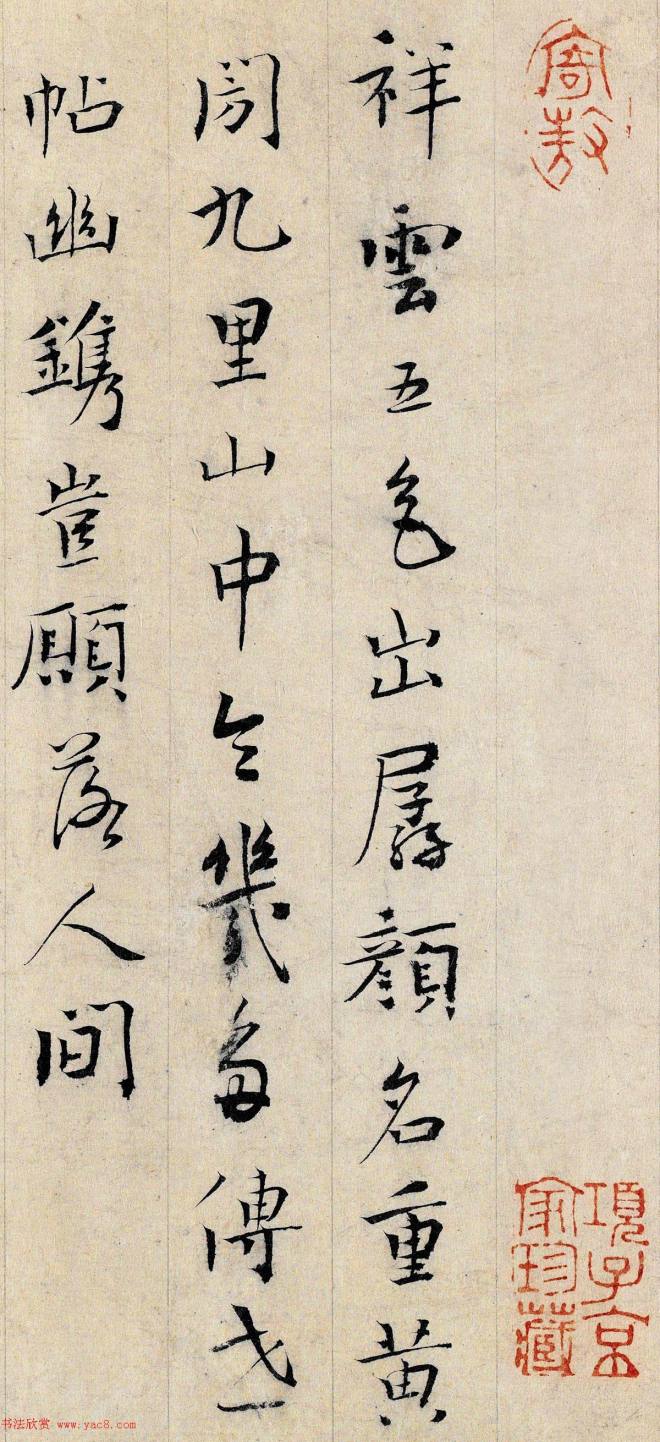 寄敖
祥雲五色出孱顏名重黃
九里山中令幾多傳世
帖幽鐫豈願落人間
項子京
家珍藏
书法欣赏 www.yac8.com